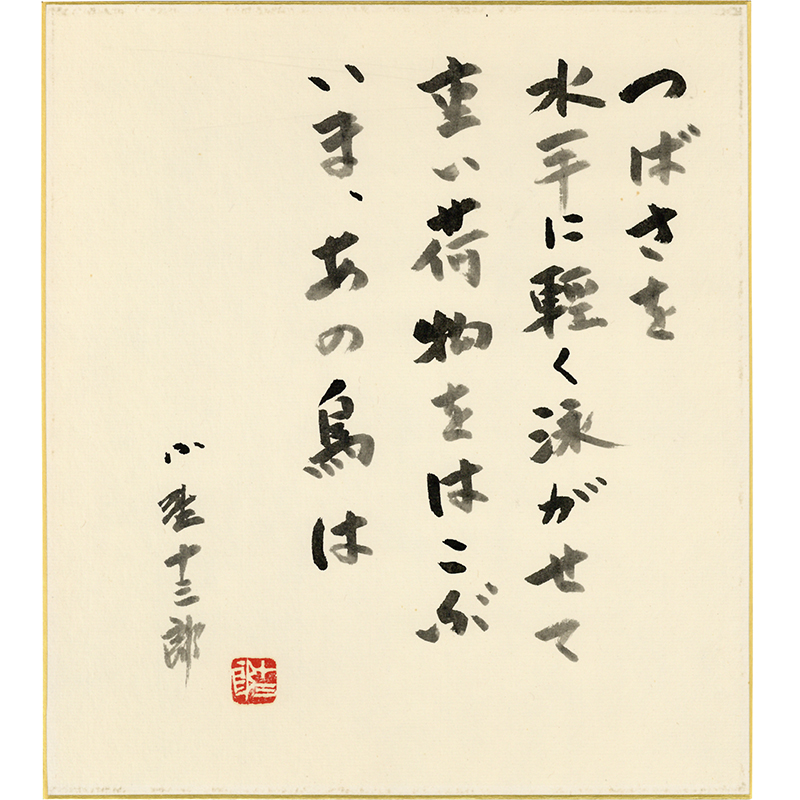 つばさを
水平に輕く泳がせて
重い荷物をはこぶ
いま、あの鳥は
小野十三郎
十三郎